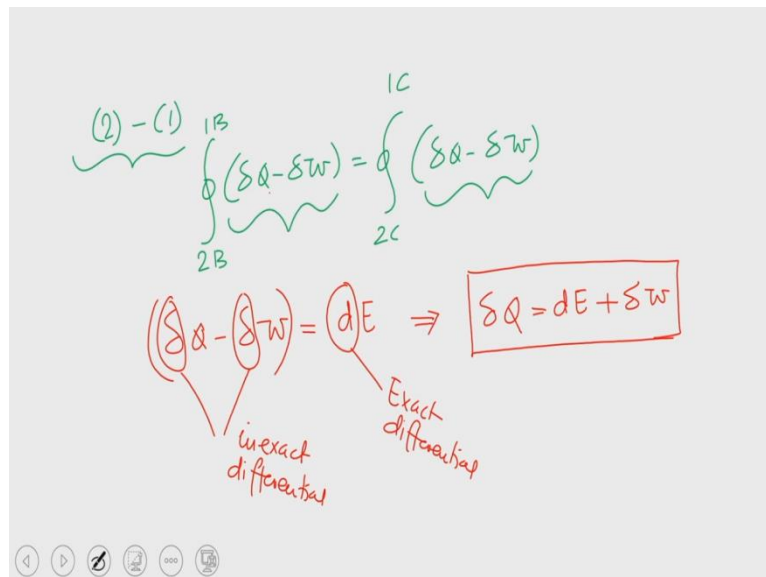 (2) - (1)
∮_{2B}^{1B} (δQ - δW) = ∮_{2C}^{1C} (δQ - δW)
(δQ - δW) = dE ⇒ δQ = dE + δW
inexact
differential
Exact
differential